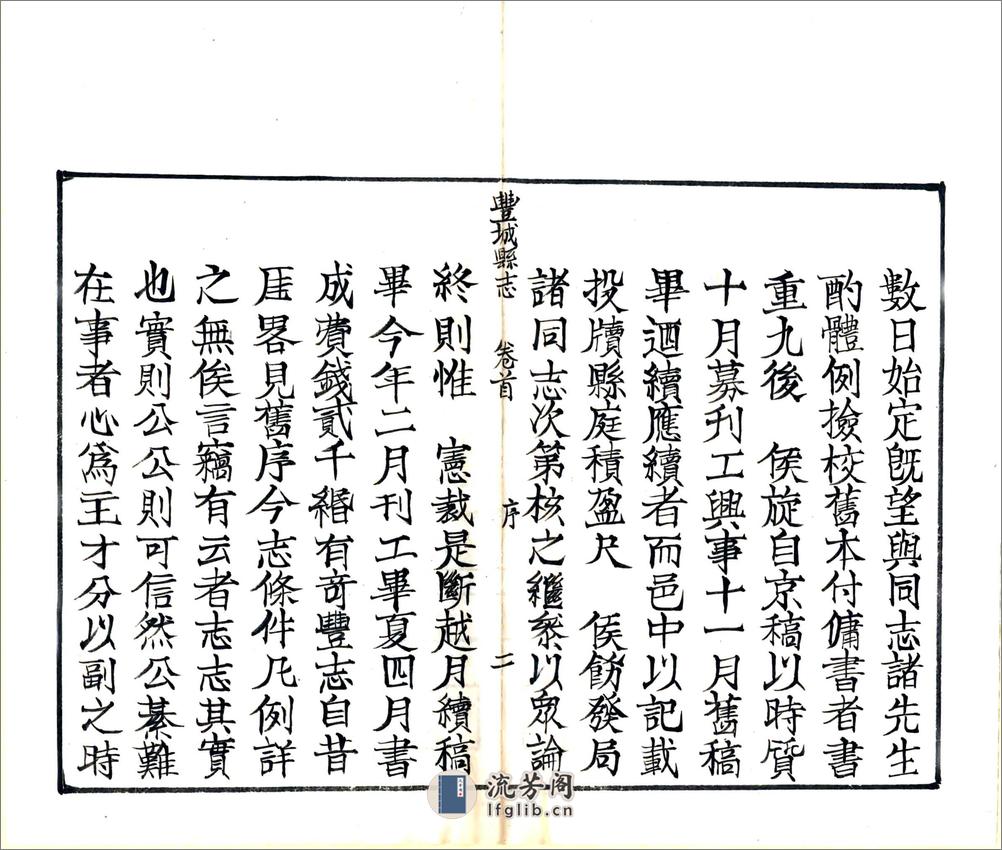 數日始定旣望與同志諸先生
酌體例撿校舊本付傭書者書
重九後　侯旋自京稿以時質
十月募刊工興事十一月舊稿
畢迺續應續者而邑中以記載
投牘縣庭積盈尺　侯飭發局
諸同志次第核之繼叅以眾論
豐城縣志　卷首　序　二
終則惟　憲裁是斷越月續稿
畢今年二月刊工畢夏四月書
成費錢貳千緡有竒豐志自昔
厓畧見舊序今志條件凡例詳
之無俟言竊有云者志志其實
也實則公公則可信然公綦難
在事者心爲王才分以副之時
流芳阁
lfglib.cn